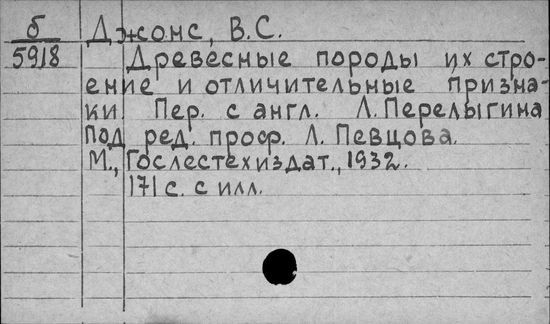 б Джонс, В.С.
5918 Древесные породы их стро-
ение и отличительные призна-
ки Пер. с англ. Л. Перелыгина
под ред. проф. Л. Певцова.
М., Гослестехиздат., 1932.
171 с. с илл.